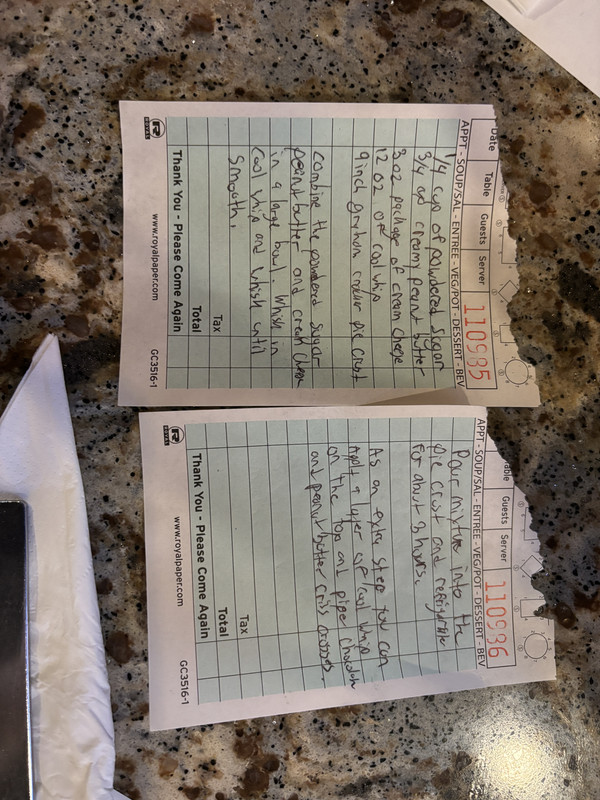 Date Table Guests Server
110935
APPT - SOUP/SAL - ENTREE - VEG/POT - DESSERT - BEV
1/4 cup of powdered sugar
3/4 creamy peanut butter
3 oz package of cream cheese
12 oz of cool whip
9 inch graham cracker pie crust
Combine the powdered sugar
peanut butter and cream cheese
in a large bowl. Whisk in
cool whip and whisk until
smooth.
Tax
Total
Thank You - Please Come Again
ROYAL
www.royalpaper.com
GC3516-1
Table Guests Server
110936
APPT - SOUP/SAL - ENTREE - VEG/POT - DESSERT - BEV
Pour mixture into the
pie crust and refrigerate
for about 3 hours.
As an extra step you can
apply a layer of cool whip
on the top and pipe chocolate
and peanut butter criss crosses
Tax
Total
Thank You - Please Come Again
ROYAL
www.royalpaper.com
GC3516-1